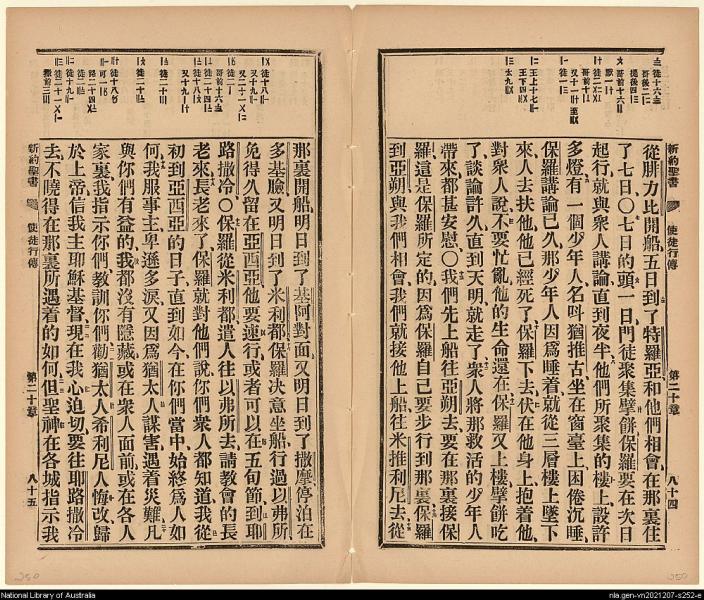 新約聖書
使徒行傳
第二十章
八十四
從腓力比開船五日到了特羅亞和他們相會在那裏住
了七日〇七日的頭一日門徒聚集擘餅保羅要在次日
起行就與衆人講論直到夜半他們所聚集的樓上設許
多燈有一個少年人名呌猶推古坐在窗臺上困倦沉睡
保羅講論已久那少年人因爲睡着就從三層樓上墜下
來人去扶他他已經死了保羅下去伏在他身上抱着他
對衆人說不要忙亂他的生命還在保羅又上樓擘餅吃
了談論許久直到天明就走了衆人將那救活的少年人
帶來都甚安慰〇我們先上船往亞朔去要在那裏接保
羅這是保羅所定的因爲保羅自己要步行到那裏保羅
到亞朔與我們相會我們就接他上船往米推利尼去從
那裏開船明日到了基阿對面又明日到了撒摩停泊在
多基臉又明日到了米利都保羅決意坐船行過以弗所
免得久留在亞西亞他要速行或者可以在五旬節到耶
路撒冷〇保羅從米利都遣人往以弗所去請教會的長
老來長老來了保羅就對他們說你們衆人都知道我從
初到亞西亞的日子直到如今在你們當中始終爲人如
何我服事主卑遜多淚又因爲猶太人謀害遇着災難凡
與你們有益的我都沒有隱藏或在衆人面前或在各人
家裏我指示你們教訓你們勸猶太人希利尼人悔改歸
於上帝信我主耶穌基督現在我心迫切要往耶路撒冷
去不曉得在那裏所遇着的如何但聖神在各城指示我
新約聖書
使徒行傳
第二十章
八十五
National Library of Australia
nla.gen-vn2021207-s252-e